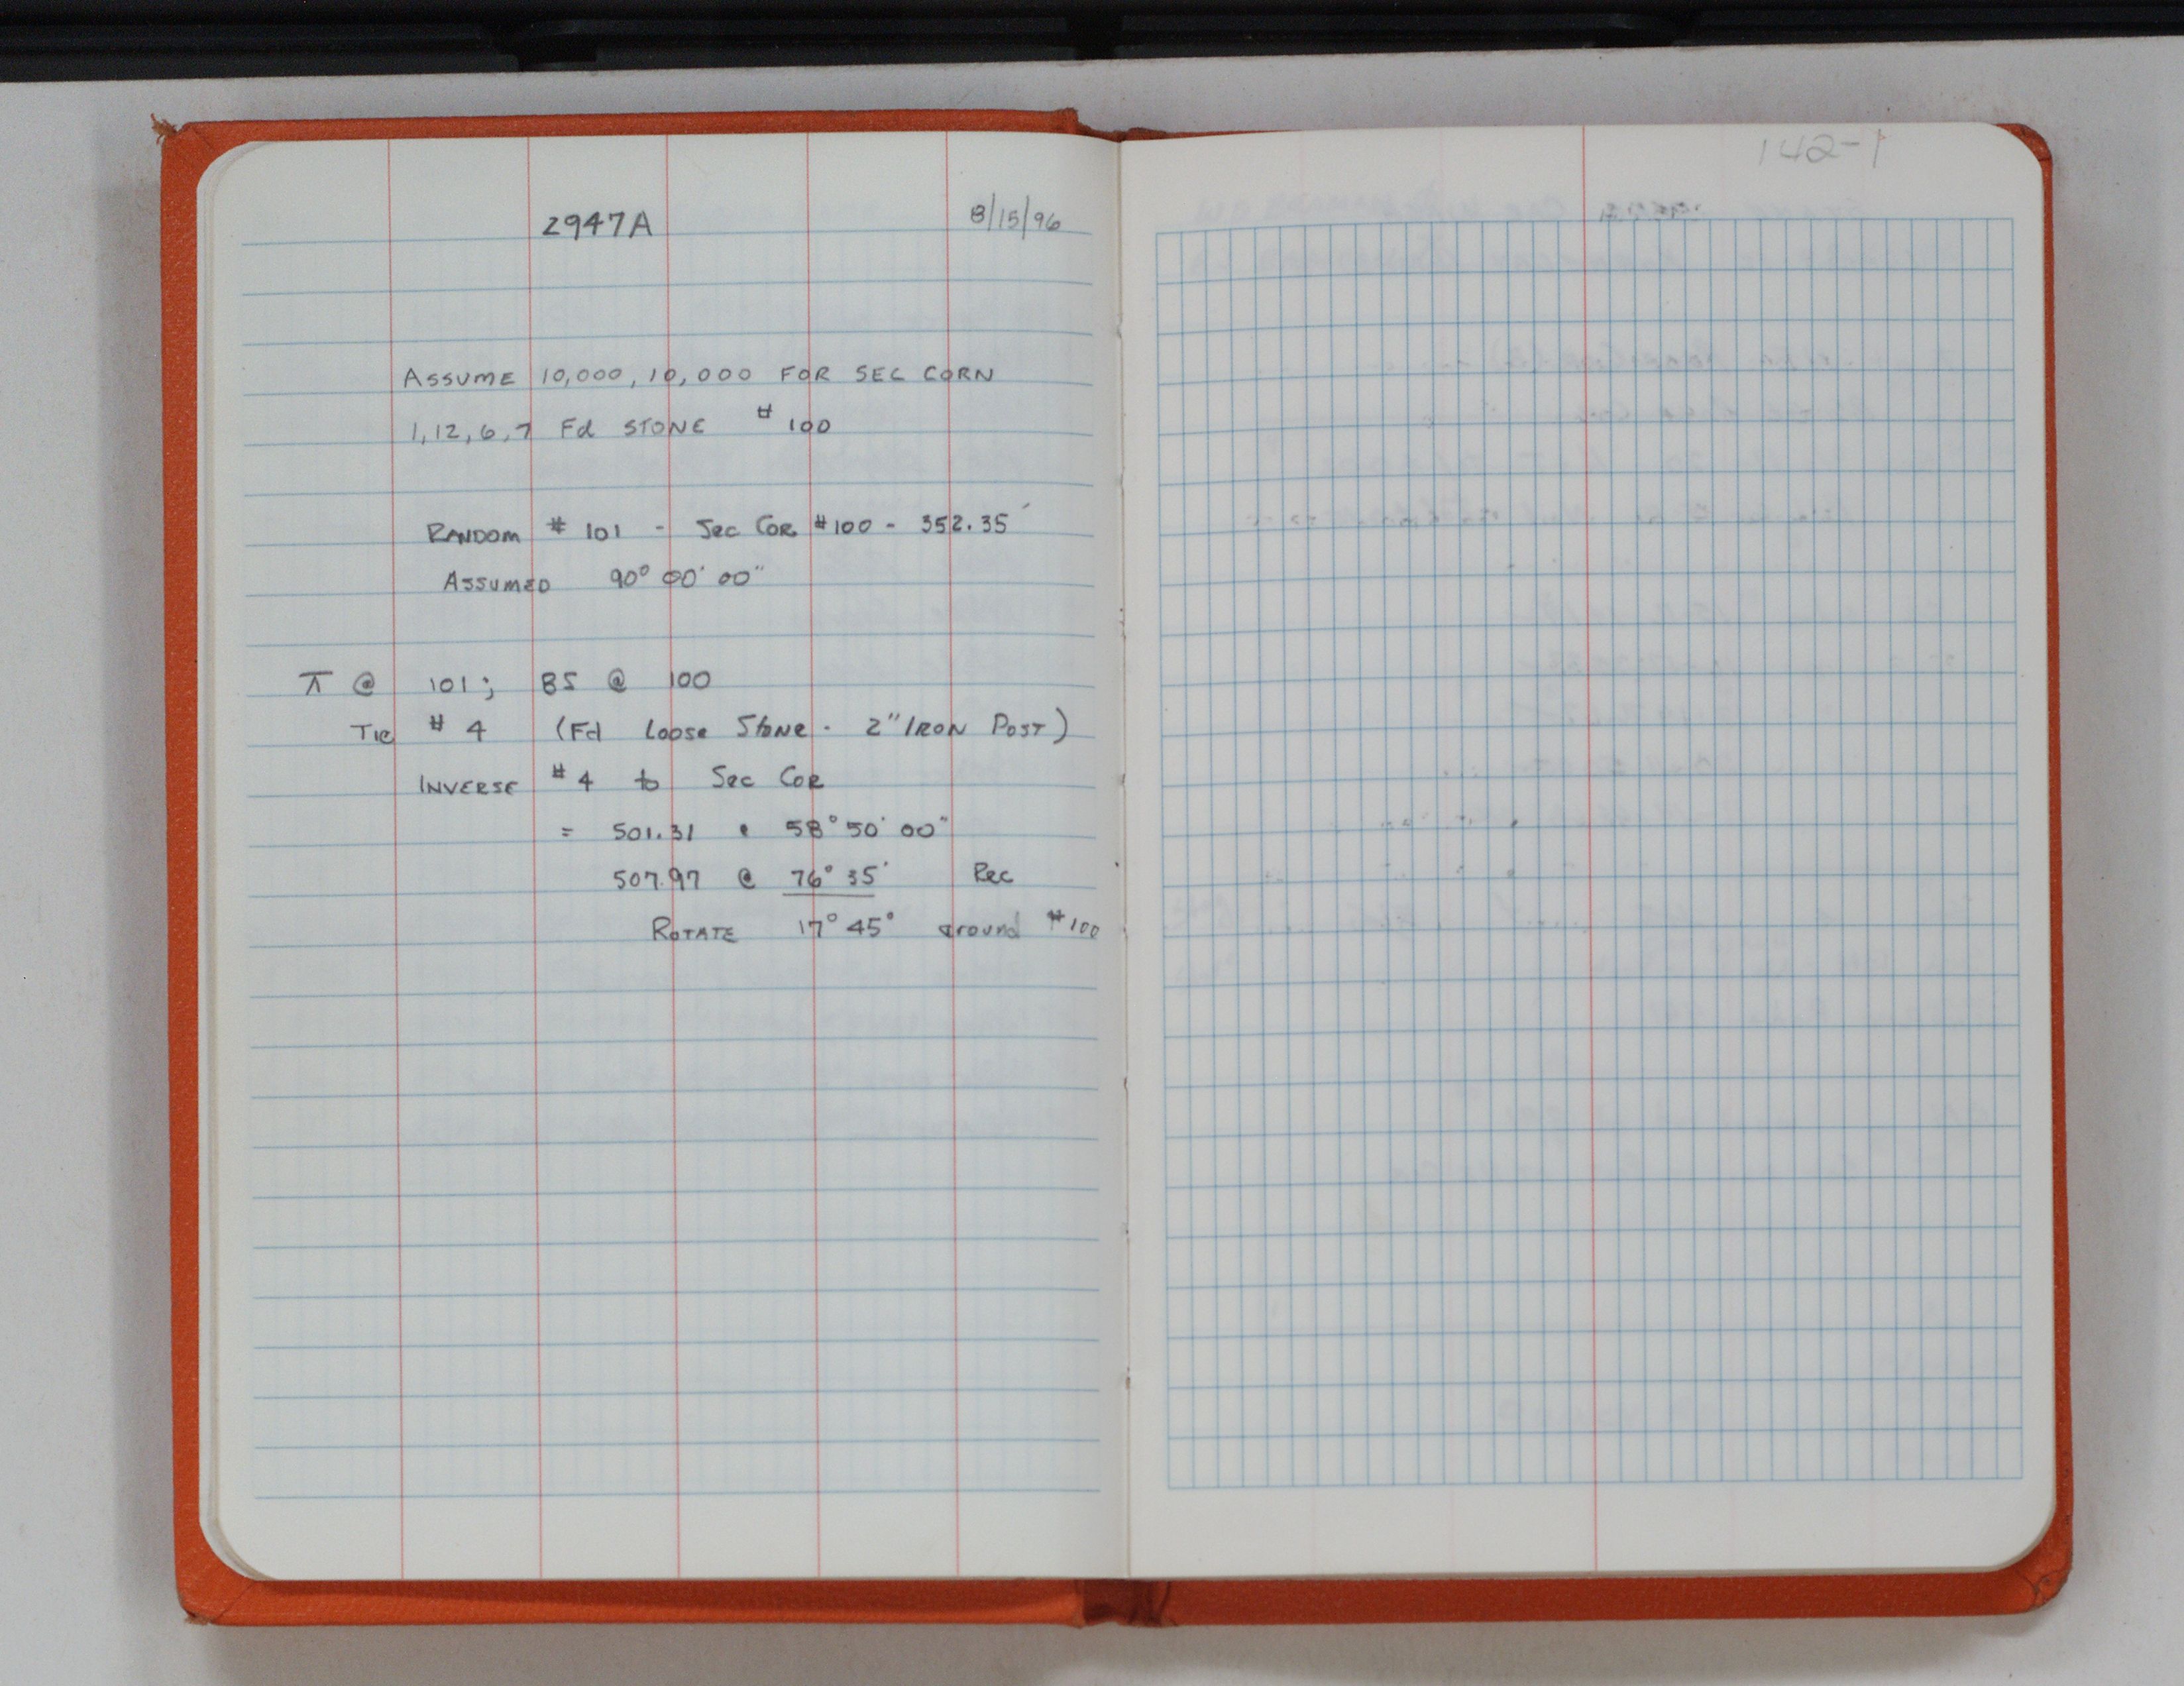 2947A 8/15/96
ASSUME 10,000, 10,000 FOR SEC CORN
1,12,6,7 Fd STONE #100
RANDOM #101 - Sec COR #100 - 352.35'
ASSUMED 90° 00' 00"
⊼ @ 101; BS @ 100
TIE #4 (Fd Loose Stone - 2" IRON POST)
INVERSE #4 to Sec COR
= 501.31 • 58° 50' 00"
507.97 @ 76° 35' Rec
ROTATE 17° 45° around #100
142-1